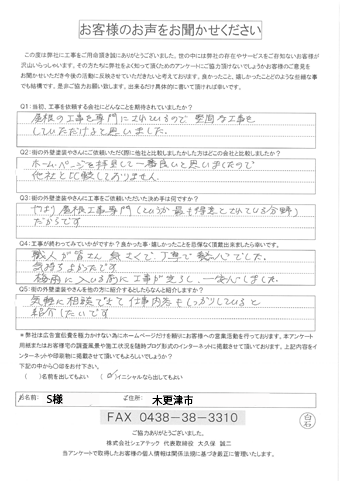 お客様のお声をお聞かせください
この度は弊社に工事をご用命頂き誠にありがとうございました。世の中には弊社の存在やサービスをご存知ないお客様が
沢山いらっしゃいます。その方たちに弊社をよく知って頂くためのアンケートにご協力頂けないでしょうかお客様のご意見を
お聞かせいただき今後の活動に反映させていただきたいと考えております。良かったこと、嬉しかったことどのような些細な事
でも結構です、是非ご協力お願い致します。出来るだけ具体的に書いて頂ければ幸いです。
Q1:当初、工事を依頼する会社にどんなことを期待されていましたか?
屋根の工事を専門にされているので 堅固な工事を
していただけると思いました。
Q2:街の外壁塗装やさんにご依頼いただく際に他社と比較しましたかした方はどこの会社と比較しましたか?
ホームページを拝見して一番良いと思いましたので
他社と比較しておりません。
Q3:街の外壁塗装やさんに工事をご依頼いただいた決め手は何ですか?
やはり屋根工事専門(というか最も得意とされている分野)
だからです
Q4:工事が終わってみていかがですか?良かった事・嬉しかったことを忌憚なく頂戴出来ましたら幸いです。
職人が皆さん 気さくで、丁寧で熱心でした。
気持ちよかったです
梅雨に入る前に工事が完了し、一安心しました。
Q5:街の外壁塗装やさんを他の方に紹介するとしたらなんと紹介しますか?
気軽に相談できて仕事内容もしっかりしていると
紹介したいです
*弊社は広告宣伝費を極力かけない為にホームページだけを頼りにお客様への営業活動を行っております。本アンケート
用紙またはお客様宅の調査風景や施工状況を随時ブログ形式のインターネットに掲載させて頂いております。上記内容をイ
ンターネットや印刷物に掲載させて頂いてもよろしいでしょうか?
下記の中から〇印をお付下さい。
( )名前を出してもよい ( 〇 )イニシャルなら出してもよい
お名前: S様 ご住所: 木更津市
FAX 0438-38-3310
白石
ご協力ありがとうございました。
株式会社シェアテック 代表取締役 大久保 誠二
当アンケートで取得したお客様の個人情報は関係法規に基づき厳正に管理いたします。